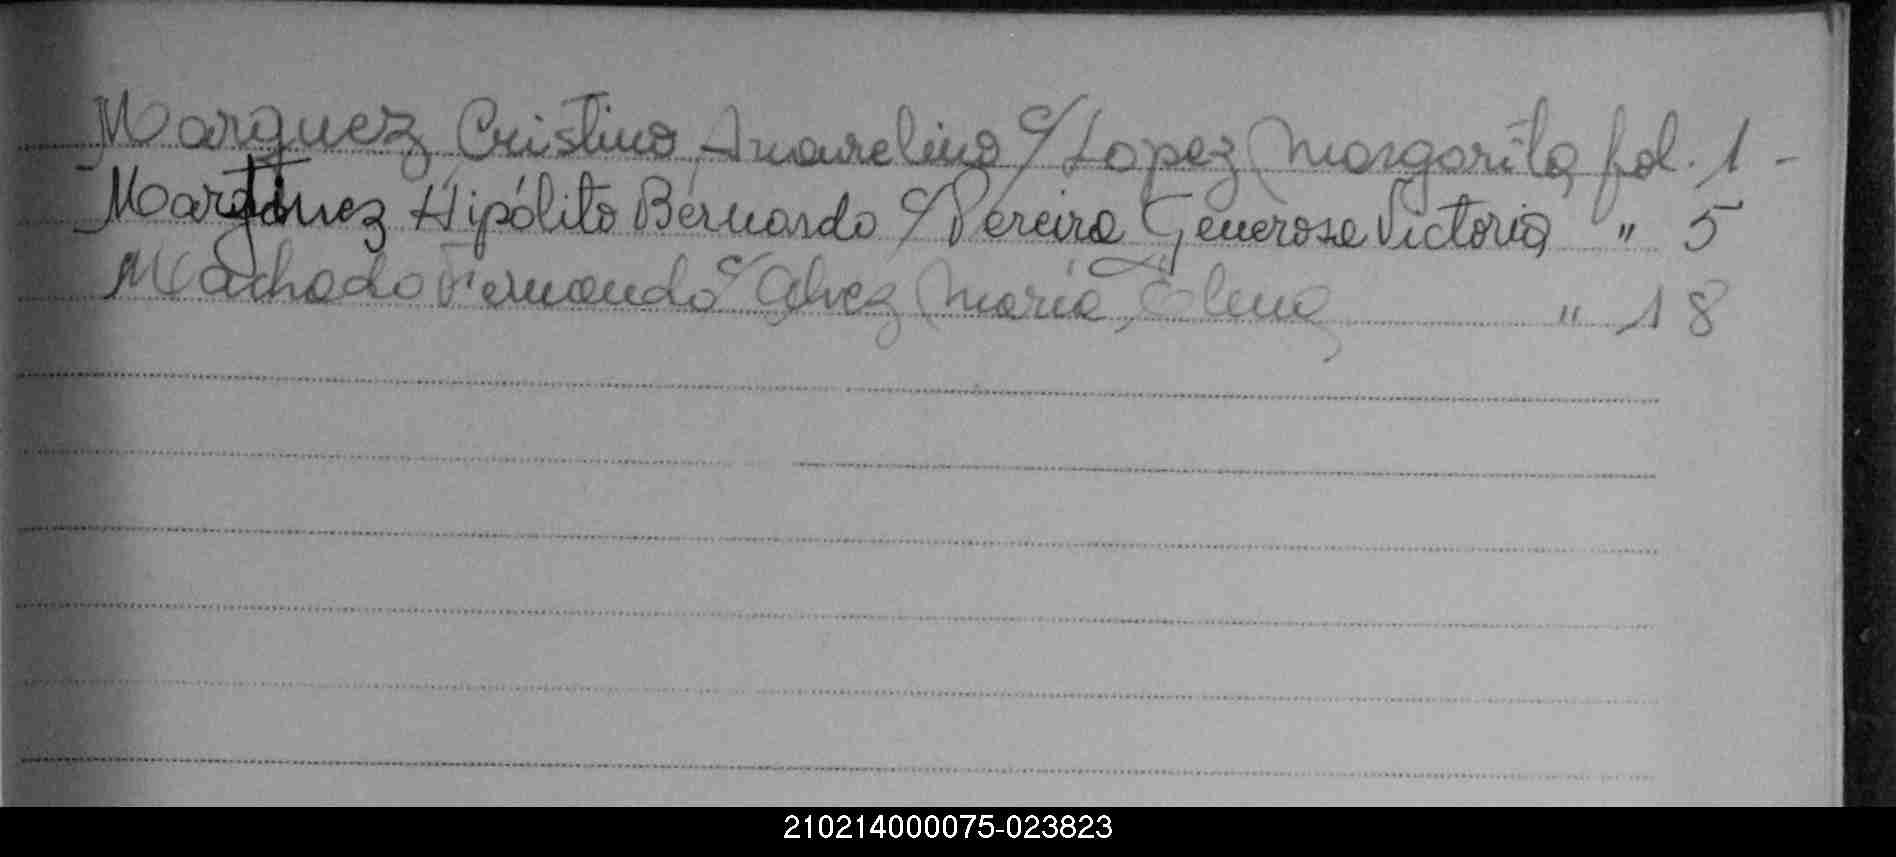 Marquez Cristino Amarelino c/ Lopez Margarita fol. 1 -
Martinez Hipólito Bernardo c/ Pereira Generosa Victoria " 5
Machado Fernando c/ Alvez María Elena " 18
210214000075-023823